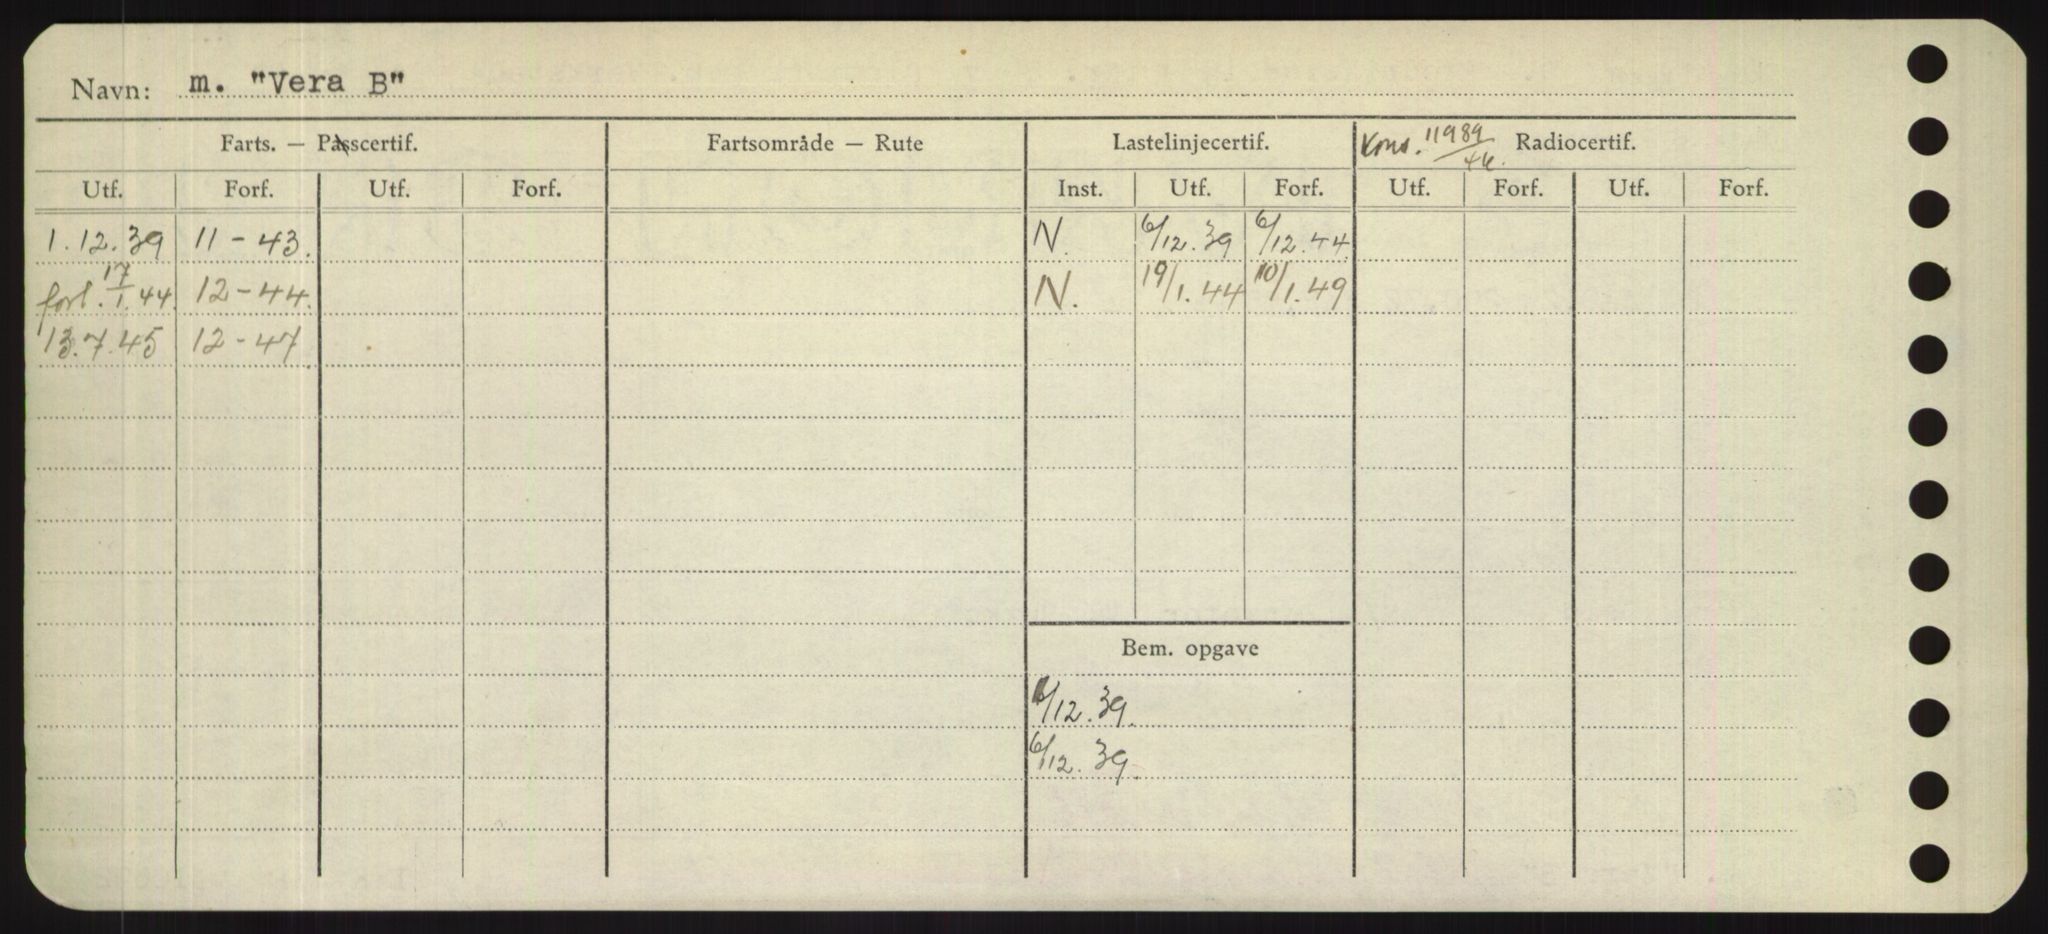 Navn: m. "Vera B"
Farts. — Passcertif. Fartsområde — Rute Lastelinjecertif. Kons. 11989/46. Radiocertif.
Utf. Forf. Utf. Forf. Inst. Utf. Forf. Utf. Forf. Utf. Forf.
1.12.39 11-43. N. 6/12.39 6/12.44
forl. 17/1.44. 12-44. N. 19/1.44 10/1.49
13.7.45 12-47
Bem. opgave
6/12.39.
6/12.39.